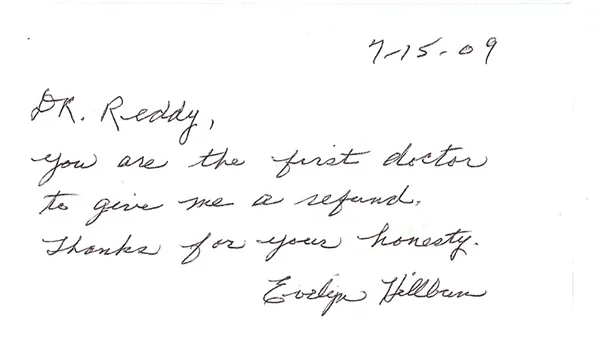 7-15-09
DR. Reddy,
you are the first doctor
to give me a refund.
Thanks for your honesty.
Evelyn Hillburn